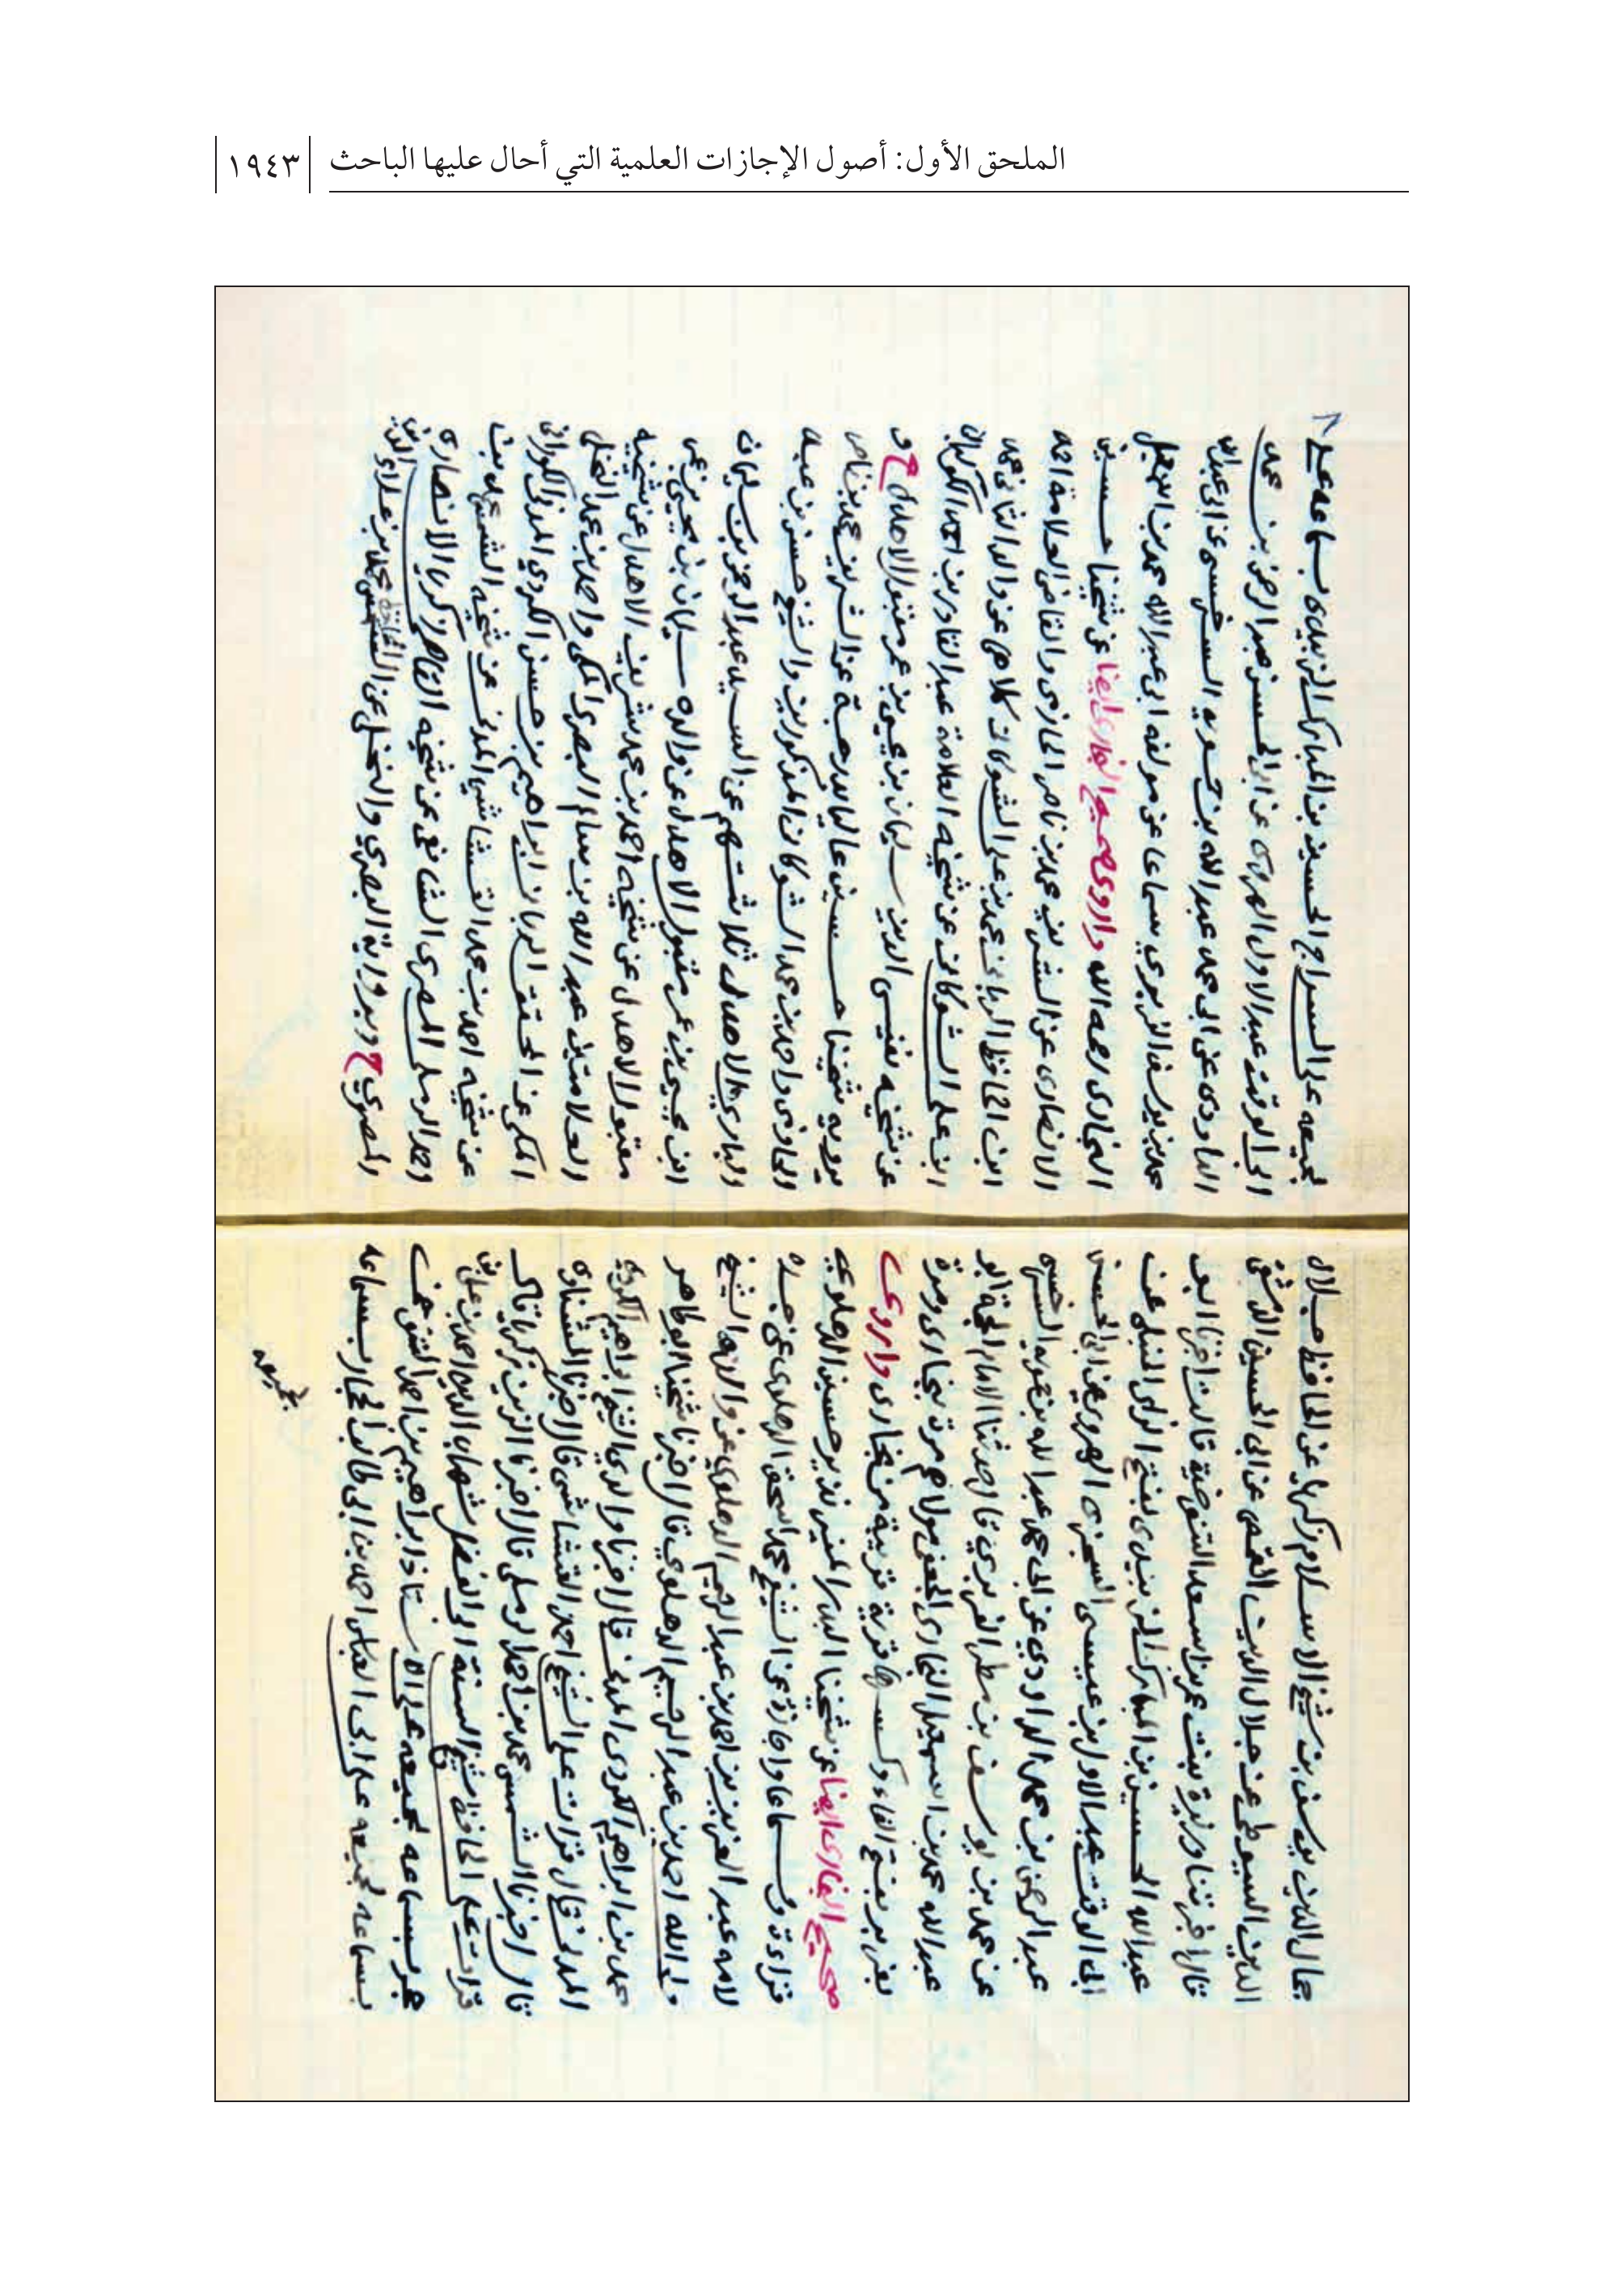 الملحق الأول: أصول الإجازات العلمية التي أحال عليها الباحث
١٩٤٣
جمال الدين يوسف بن شيخ الاسلام زكريا عن الحافظ جلال
الدين السيوطي عن جلال الدين القمصي عن ابي الحسين الدمشقي
قال اخبرتنا وزيرة بنت عمر بن اسعد التنوخية قالت اخبرنا ابو
عبد الله الحسين بن المبارك الزبيدي بفتح الزاي الحنبلي عن
ابي الوقت عبد الاول بن عيسى السجزي الهروي عن ابي الحسن
عبد الرحمن بن محمد الداودي عن ابي محمد عبد الله بن حمويه السرخسي
عن محمد بن يوسف بن مطر الفربري قال حدثنا الامام الحجة ابو
عبد الله محمد بن اسمعيل البخاري الجعفي مولاهم مرة ببخارى ومرة
بفربر بفتح الفاء وكسرها قرية قريبة من بخارى واروي
صحيح البخاري ايضا عن شيخنا البدر المنير نذير حسين الدهلوي
قراءة وسماعا واجازة عن الشيخ محمد اسحق الدهلوي عن جده
لامه عبد العزيز بن احمد بن عبد الرحيم الدهلوي عن والده الشيخ
ولي الله احمد بن عبد الرحيم الدهلوي قال اخبرنا شيخنا ابو طاهر
محمد بن ابراهيم الكردي المدني قال اخبرنا والدي الشيخ ابراهيم الكردي
المدني قال قرات على الشيخ احمد القشاشي قال اخبرنا الشناوي
قال اخبرنا الشمس محمد بن احمد الرملي قال اخبرنا الزين زكريا قال
قرات على الحافظ شيخ السنة ابي الفضل شهاب الدين احمد بن علي بن
حجر بسماعه لجميعه على الاستاذ ابراهيم بن احمد التنوخي
بسماعه لجميعه على ابي العباس احمد بن ابي طالب الحجار بسماعه
لجميعه
٨
لجميعه على السراج الحسين بن المبارك الزبيدي بسماعه على
ابي الوقت عبد الاول الهروي عن ابي الحسن عبد الرحمن بن محمد
الداودي عن ابي محمد عبد الله بن حمويه السرخسي عن ابي عبد الله
محمد بن يوسف الفربري سماعا عن مولفه ابي عبد الله محمد بن اسمعيل
البخاري رحمه الله واروي صحيح البخاري ايضا عن شيخنا حسين
الانصاري عن الشريف محمد بن ناصر الحازمي والقاضي العلامة احمد
ابن الحافظ الرباني محمد بن علي الشوكاني كلاهما عن والد الثاني محمد
ابن علي الشوكاني عن شيخه العلامة عبد القادر بن احمد الكوكباني
عن شيخه نفيس الدين سليمان بن يحيى بن عمر مقبول الاهدل ح و
يرويه شيخنا حسين عاليا بدرجة عن الشريف محمد بن ناصر
الحازمي واحمد بن محمد الشوكاني المذكورين والشيخ حسن بن عبد
الباري الاهدل ثلاثتهم عن السيد عبد الرحمن بن سليمان
ابن يحيى بن عمر مقبول الاهدل عن والده سليمان بن يحيى بن عمر
مقبول الاهدل عن شيخه احمد بن محمد شريف الاهدل عن شيخيه
العلامتين عبد الله بن سالم البصري المكي واحمد بن محمد النخلي
المكي عن المحقق الرباني ابراهيم بن حسن الكردي المدني الكوراني
عن شيخه احمد بن محمد القشاشي المدني عن شيخه الشمس محمد بن
احمد الرملي المصري الشافعي عن شيخه القاضي زكريا الانصاري
المصري ح وبرواية البصري والنخلي عن الشمس الحافظ محمد بن علاء الدين